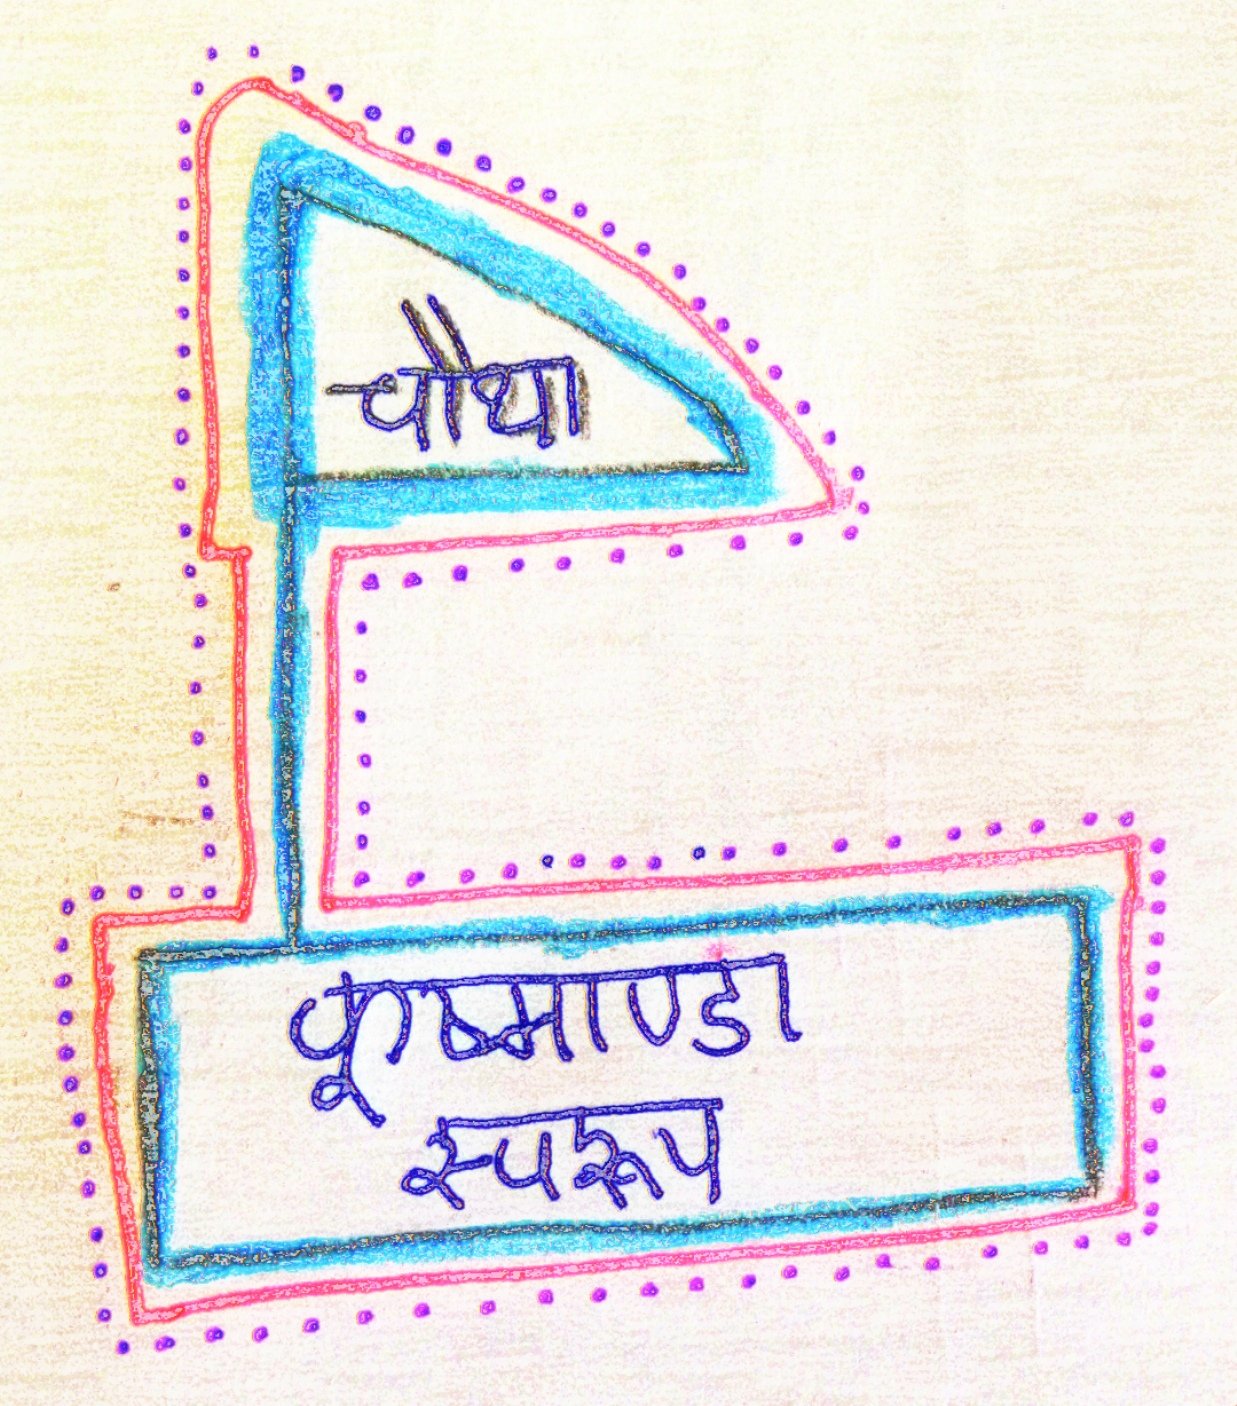 चौथा
कूष्माण्डा
स्वरूप